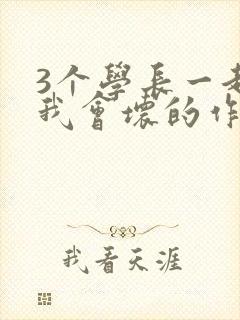 3个學長一
我會壞的作
我看天涯